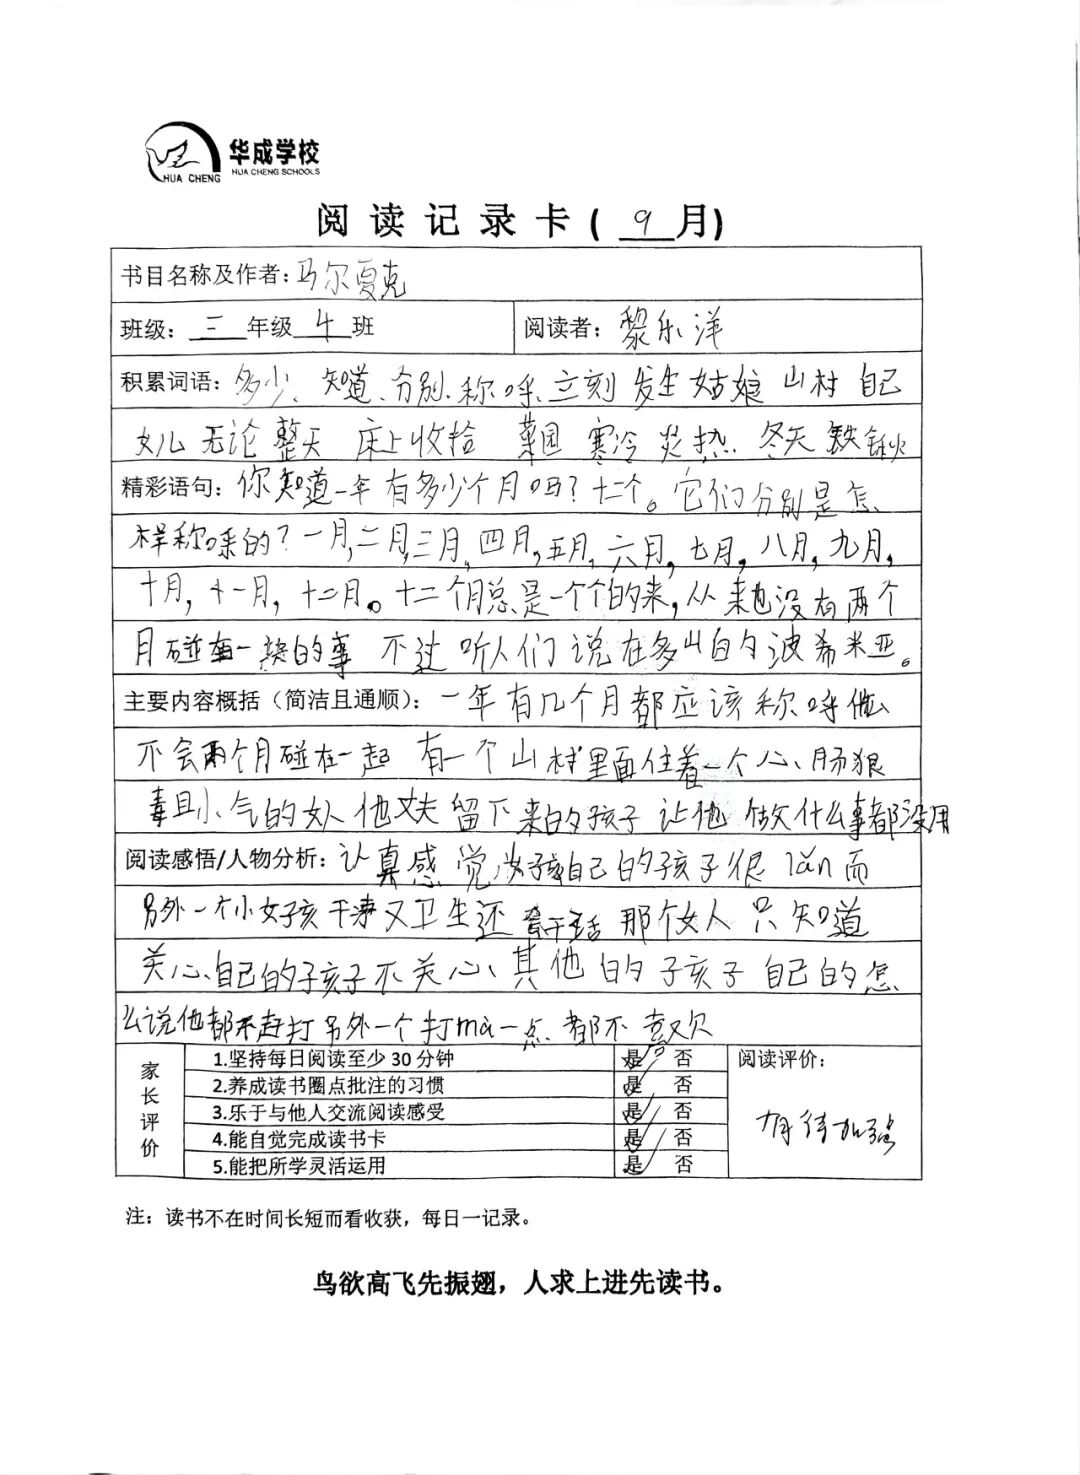 华成学校
HUA CHENG SCHOOLS
HUA CHENG
阅读记录卡(9月)
书目名称及作者:马尔夏克
班级:三年级4班 阅读者:黎乐洋
积累词语:多少、知道、分别、称呼、立刻 发生 姑娘 山村 自己
女儿 无论 整天 床上 收拾 菜园 寒冷 炎热 冬天 铁锹
精彩语句:你知道一年有多少个月吗?十二个。它们分别是怎
样称呼的?一月,二月,三月,四月,五月,六月,七月,八月,九月,
十月,十一月,十二月。十二个月总是一个个的来,从来也没有两个
月碰在一块的事 不过 听人们说在多山的波希米亚。
主要内容概括(简洁且通顺):一年有几个月都应该称呼他
不会两个月碰在一起 有一个山村里面住着一个心肠狠
毒且小气的女人 他丈夫留下来的孩子 让他做什么事都没用
阅读感悟/人物分析:认真感觉 自己的孩子很 lǎn 而
另外一个小女孩干 又卫生还 干活 那个女人只知道
关心自己的子孩子不关心其他的子孩子 自己的怎
么说他都不 打 另外一个打mà一点 都不 喜欢
家长评价
1.坚持每日阅读至少30分钟 是 否 阅读评价:
2.养成读书圈点批注的习惯 是 否
3.乐于与他人交流阅读感受 是 否 有待加强
4.能自觉完成读书卡 是 否
5.能把所学灵活运用 是 否
注:读书不在时间长短而看收获,每日一记录。
鸟欲高飞先振翅,人求上进先读书。